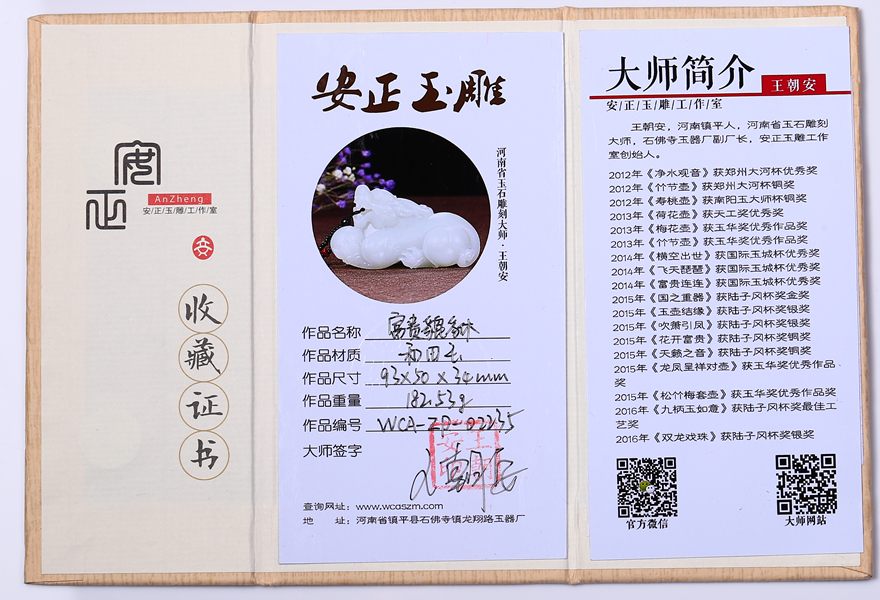 安正
AnZheng
安/正/玉/雕/工/作/室
安
收
藏
证
书
安正玉雕
河南省玉石雕刻大师·王朝安
作品名称 富贵貔貅
作品材质 和田玉
作品尺寸 93x50x34mm
作品重量 182.53g
作品编号 WCA-ZP-02235
大师签字
查询网址：www.wcaszm.com
地　址：河南省镇平县石佛寺镇龙翔路玉器厂
大师简介
王朝安
安/正/玉/雕/工/作/室
王朝安，河南镇平人，河南省玉石雕刻
大师，石佛寺玉器厂副厂长，安正玉雕工作
室创始人。
2012年《净水观音》获郑州大河杯优秀奖
2012年《竹节壶》获郑州大河杯铜奖
2012年《寿桃壶》获南阳玉大师杯铜奖
2013年《荷花壶》获天工奖优秀奖
2013年《梅花壶》获玉华奖优秀作品奖
2013年《竹节壶》获玉华奖优秀作品奖
2014年《横空出世》获国际玉城杯优秀奖
2014年《飞天琵琶》获国际玉城杯优秀奖
2014年《富贵连连》获国际玉城杯优秀奖
2015年《国之重器》获陆子冈杯奖金奖
2015年《玉壶结缘》获陆子冈杯奖银奖
2015年《吹箫引凤》获陆子冈杯奖银奖
2015年《花开富贵》获陆子冈杯奖铜奖
2015年《天籁之音》获陆子冈杯奖铜奖
2015年《龙凤呈祥对壶》获玉华奖优秀作品
奖
2015年《松竹梅套壶》获玉华奖优秀作品奖
2016年《九柄玉如意》获陆子冈杯奖最佳工
艺奖
2016年《双龙戏珠》获陆子冈杯奖银奖
官方微信
大师网站